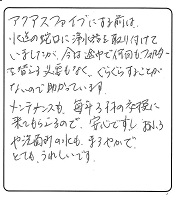 アクアスファイブにする前は、
水道の蛇口に浄水器を取り付けて
いましたが、今は途中で何回もフィルター
を替える必要もなく、ぐらぐらすることが
ないので助かっています。
メンテナンスも、毎年3月の点検に
来てもらえるので、安心ですし おふろ
や洗面所の水も、まろやかで、
とても、うれしいです。